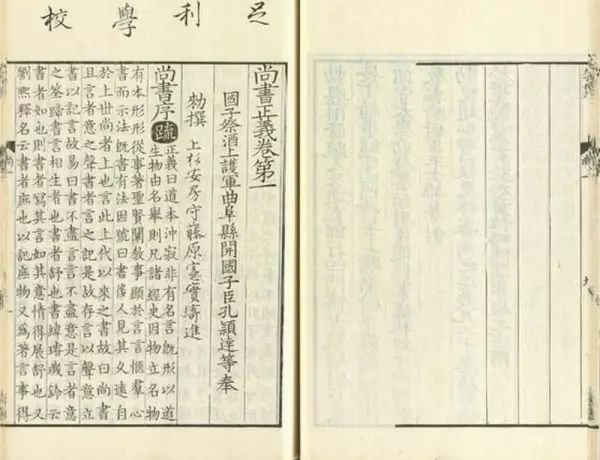 足利學校
尚書正義卷第一
國子祭酒上護軍曲阜縣開國子臣孔穎達等奉
勑撰 上杉安房守藤原憲實寄進
尚書序 疏 正義曰道本沖寂非有名言旣形以道
生物由名舉則凡諸經史因物立名物
有本形形從事著聖賢闡敎事顯於言言愜羣心
書而示法旣書有法因號曰書後人見其乆遠自
於上世尚者上也言此上代以來之書故曰尚書
且言者意之聲書者言之記是故存言以聲意立
書以記言故易曰書不盡言言不盡意是言者意
之筌蹄書言相生者也書者舒也書緯璿璣鈐云
書者如也則書者寫其言如其意情得展舒也又
劉熙釋名云書者庶也以記庶物又爲著言事得